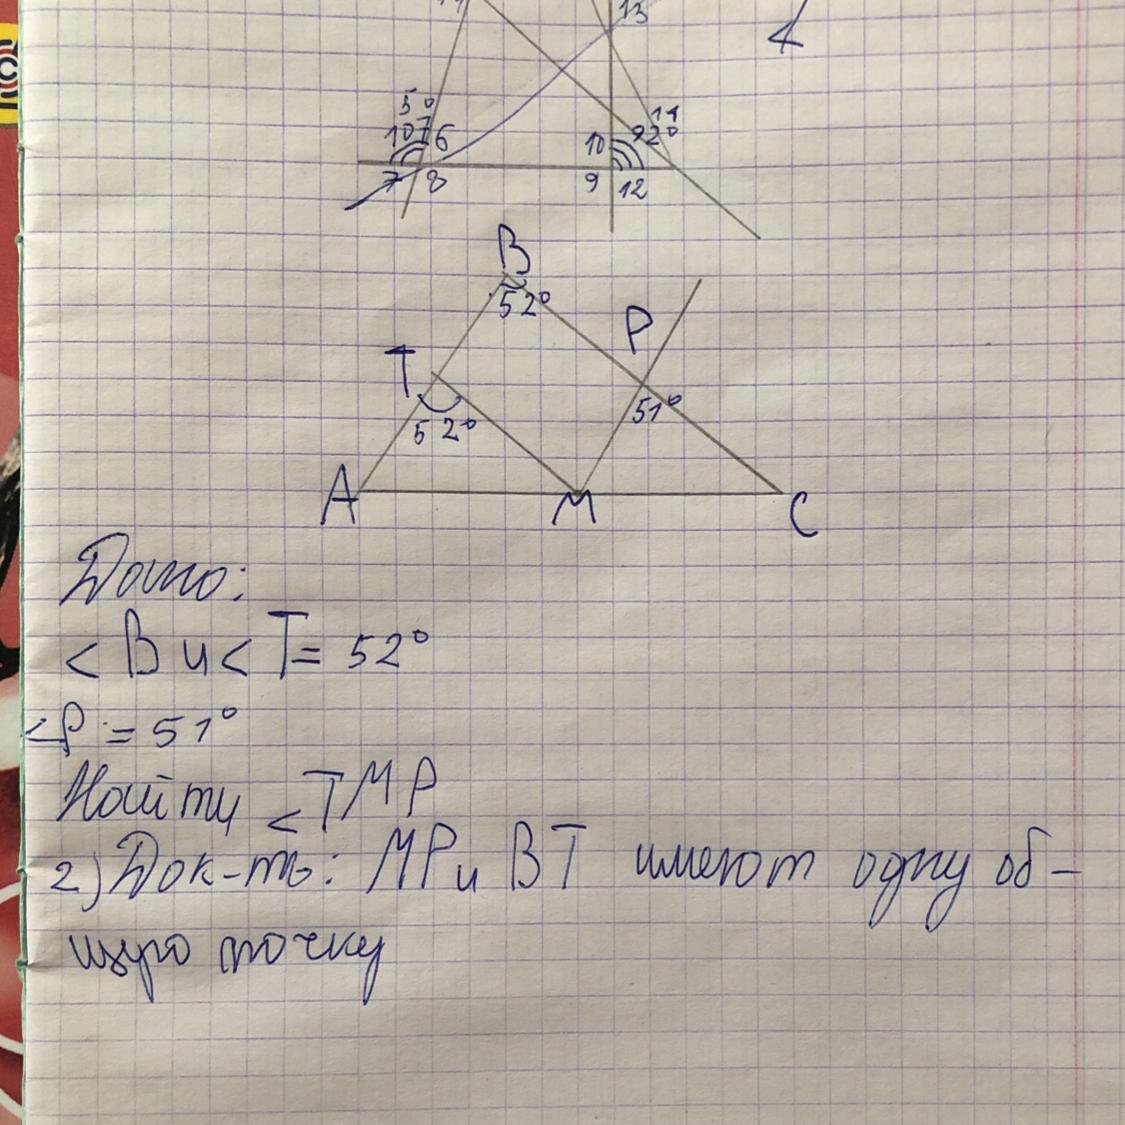 13
5°
107 6
7 8
10
9 12
11
92°
B
52°
P
T
51°
52°
A M C
Дано:
<B и <T = 52°
<P = 51°
Найти <TMP
2) Док-ть: MP и BT имеют одну об-
щую точку